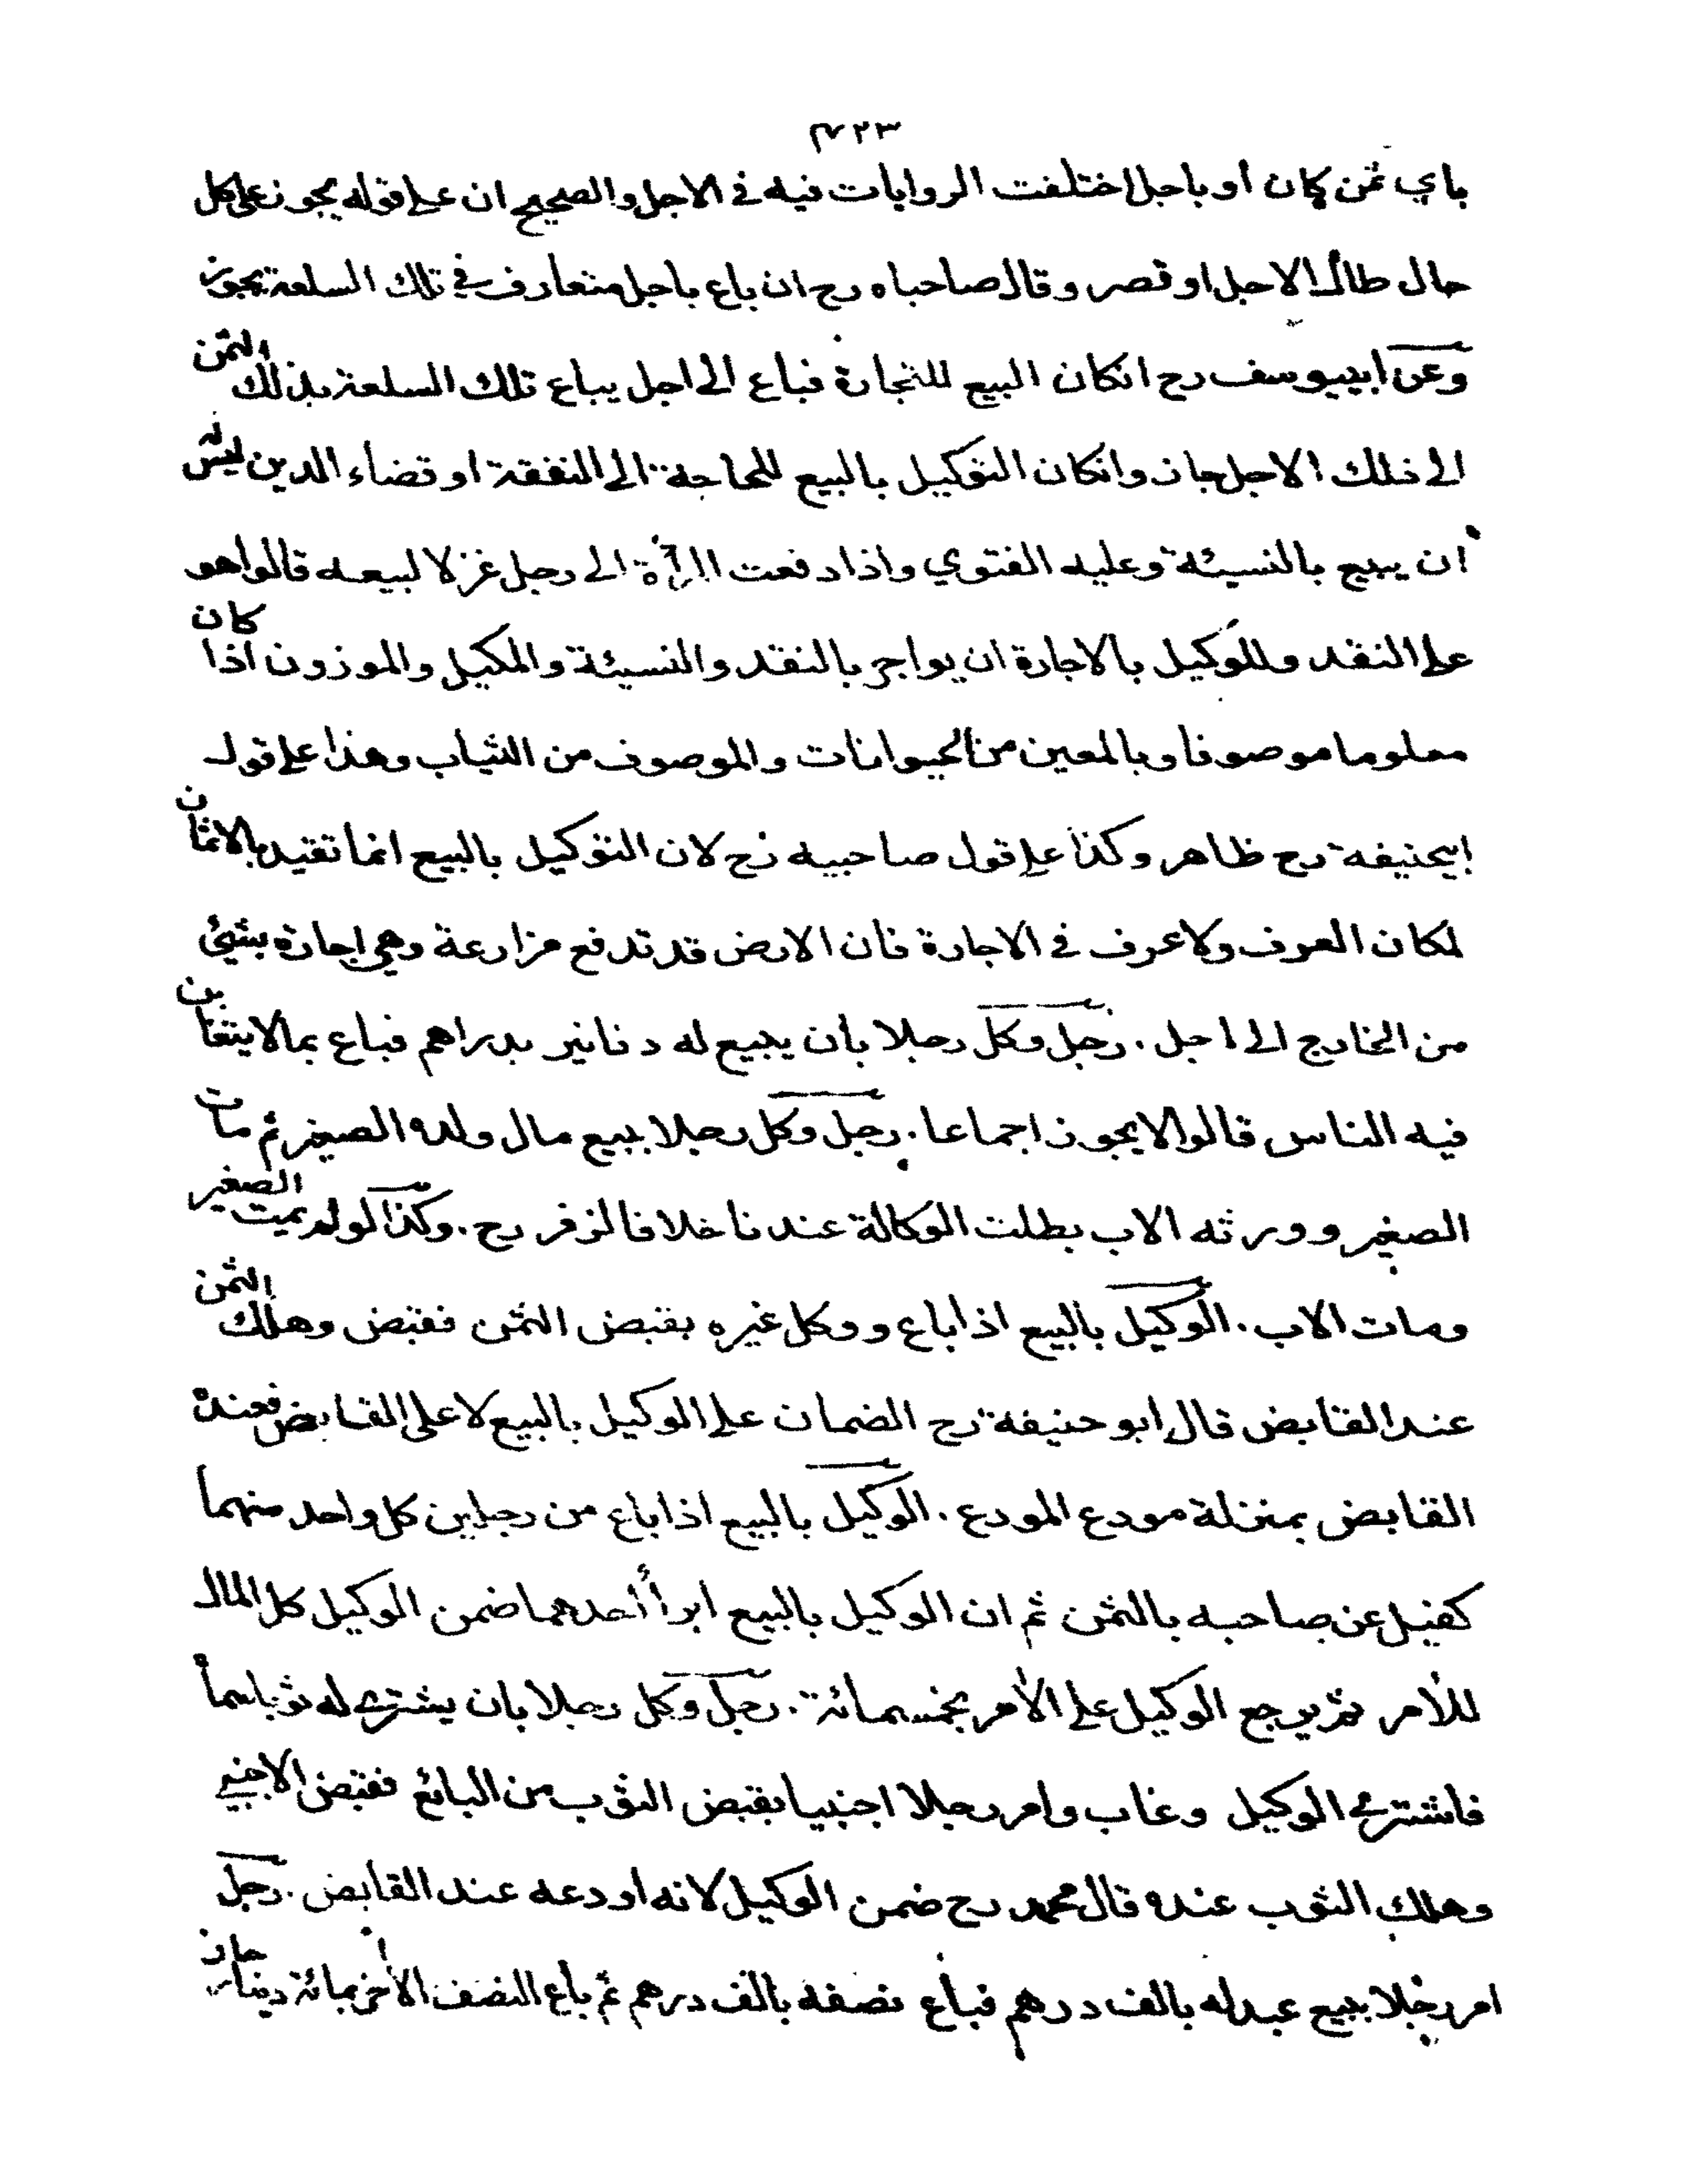 ٤٢٣
باي ثمن كان او باجل اختلفت الروايات فيه في الاجل والصحيح ان على قوله يجوز على كل
حال طال الاجل او قصر وقال صاحباه رح ان باع باجل متعارف في تلك السلعة يجوز
وعن ابييوسف رح انكان البيع للتجارة فباع الى اجل يباع تلك السلعة بذلك الثمن
الى ذلك الاجل جاز وانكان التوكيل بالبيع للحاجة الى النفقة او قضاء الدين ليس له
ان يبيع بالنسيئة وعليه الفتوي واذا دفعت المرأة الى رجل غزلا لبيعه قالوا هو
على النقد وللوكيل بالاجارة ان يواجر بالنقد والنسيئة والمكيل والموزون اذا كان
معلوما موصوفا وبالمعين من الحيوانات والموصوف من الثياب وهذا على قول
ابيحنيفة رح ظاهر وكذا على قول صاحبيه رح لان التوكيل بالبيع انما تقيد بالاثمان
لمكان العرف ولا عرف في الاجارة فان الارض قد تدفع مزارعة وهي اجارة بشيئ
من الخارج الى اجل . رجل وكل رجلا بأن يبيع له دنانير بدراهم فباع بما لا يتغابن
فيه الناس قالوا لا يجوز اجماعا . رجل وكل رجلا ببيع مال ولده الصغير ثم مات
الصغير وورثه الاب بطلت الوكالة عندنا خلافا لزفر رح . وكذا لو لم يمت الصغير
ومات الاب . الوكيل بالبيع اذا باع ووكل غيره بقبض الثمن فقبض وهلك الثمن
عند القابض قال ابو حنيفة رح الضمان على الوكيل بالبيع لا على القابض فعنده
القابض بمنزلة مودع المودع . الوكيل بالبيع اذا باع من رجلين كل واحد منهما
كفيل عن صاحبه بالثمن ثم ان الوكيل بالبيع ابرأ أحدهما ضمن الوكيل كل المال
للآمر ثم يرجع الوكيل على الآمر بخمسمائة . رجل وكل رجلا بان يشتري له ثوبا سماه
فاشترى الوكيل وغاب وامر رجلا اجنبيا بقبض الثوب من البائع فقبض الاجنبي
وهلك الثوب عنده قال محمد رح ضمن الوكيل لانه اودعه عند القابض . رجل
امر رجلا ببيع عبد له بالف درهم فباع نصفه بالف درهم ثم باع النصف الآخر بمائة دينار جاز